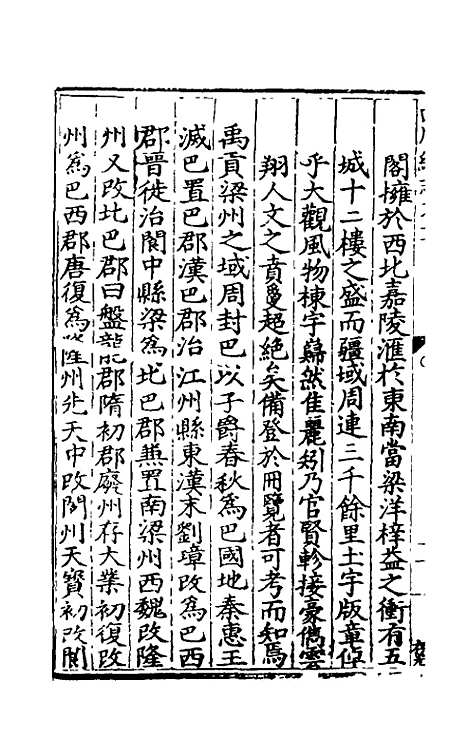 閣擁於西北嘉陵滙於東南當梁洋梓益之衝有五
城十二樓之盛而疆域周連三千餘里土宇版章倬
乎大觀風物棟宇巋然佳麗矧乃官賢軫接豪儁雲
翔人文之賁敻超絶矣備登於冊覽者可考而知焉
禹貢梁州之域周封巴以子爵春秋爲巴國地秦惠王
滅巴置巴郡漢巴郡治江州縣東漢末劉璋改爲巴西
郡晉徙治閬中縣梁爲北巴郡兼置南梁州西魏改隆
州又改北巴郡曰盤龍郡隋初郡廢州存大業初復改
州爲巴西郡唐復爲隆州先天中改閬州天寶初改閬